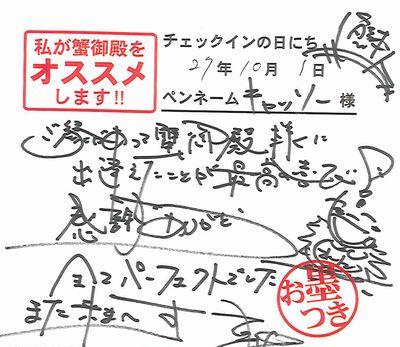 私が蟹御殿を
オススメ
します!!
チェックインの日にち
27年10月1日
ペンネーム キャッソー 様
ご縁があって蟹御殿様に
出逢えたことが最高の喜び♪
感謝
全てパーフェクトでした
また来まーす
お墨つき